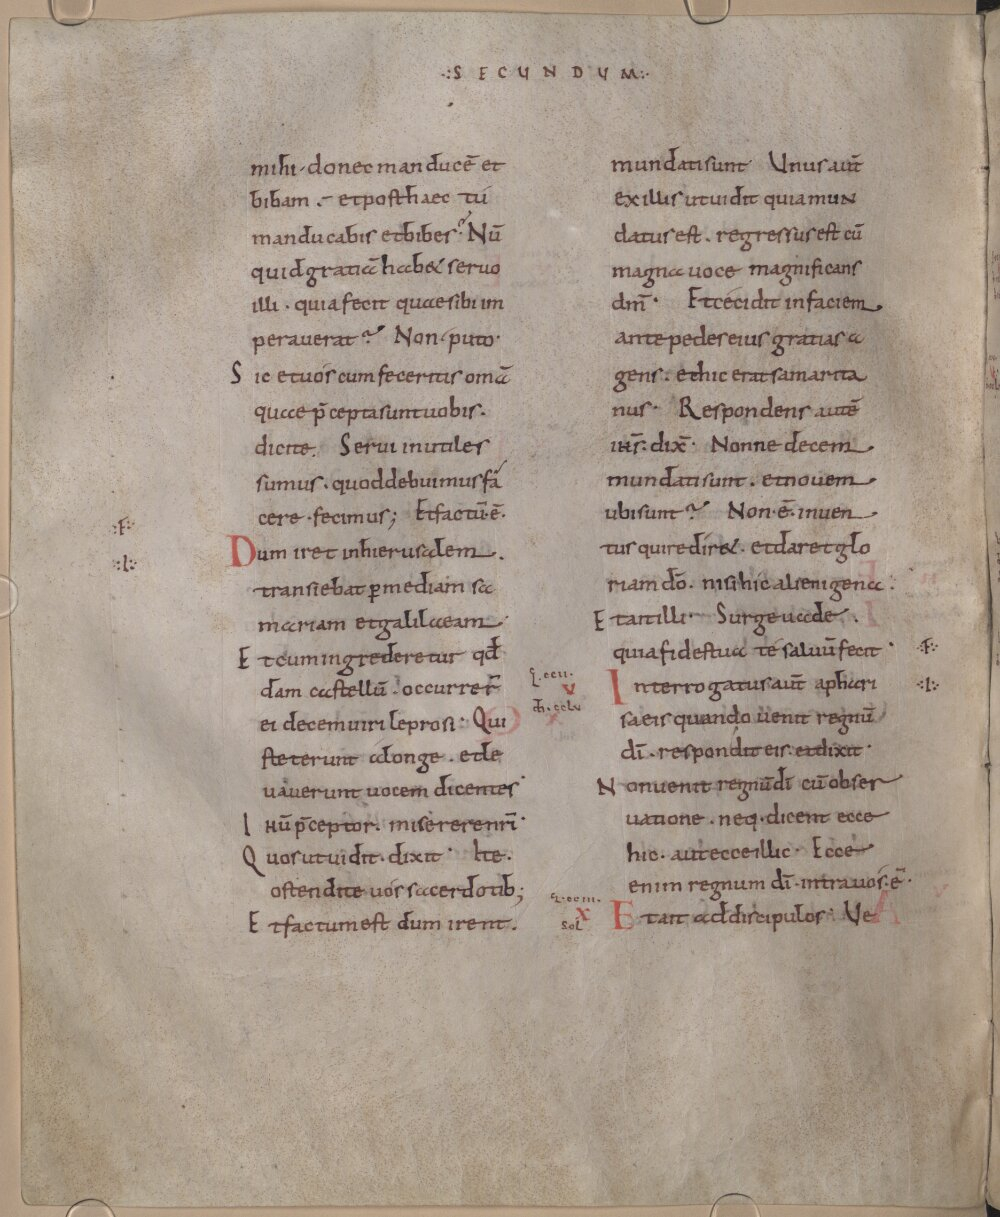 ·:SECUNDUM:·
mihi · donec manducē et
bibam . — et posthaec tu
manducabis et bibes? Nū
quid gratiā habet seruo
illi · quia fecit quae sibi im
perauerat? Non puto·
Sic et uos cum feceritis om̄a
quae p̄cepta sunt uobis.
dicite. Serui inutiles
sumus · quod debuimus fa
cere · fecimus; Et factū ē·
Dum iret in hierusalem .
transiebat ꝑ mediam sa
mariam et galilaeam·
Et cum ingrederetur qđ
dam castellū · occurrer̄
ei decem uiri leprosi· Qui
steterunt a longe . et le
uauerunt uocem dicentes·
Iħu p̄ceptor · miserere nr̄i·
Quos ut uidit · dixit· Ite ·
ostendite uos sacerdotib;
Et factum est dum irent .
·F·
·I·
ꝉ·ccii·
v
m̄·cclv
ꝉ·cciii·
x
sol
mundati sunt· Unus aut̄
ex illis ut uidit quia mun
datus est . regressus est cū
magna uoce magnificans
dm̄· Et cecidit in faciem
ante pedes eius gratias a
gens . et hic erat samarita
nus· Respondens autē
iħs · dix̄· Nonne decem
mundati sunt . et nouem
ubi sunt? Non ē · inuen
tus qui rediret · et daret glo
riam dō · nisi hic alienigena :
Et ait illi· Surge uade .
quia fides tua te saluū fecit·
Interrogatus aut̄ a phari
saeis quando uenit regnū
dī · respondit eis · et dixit·
Non uenit regnū dī cū obser
uatione . neq· dicent ecce
hic · aut ecce illic· Ecce
enim regnum dī · intra uos · ē·
Et ait ad discipulos· Ve
·F·
·I·